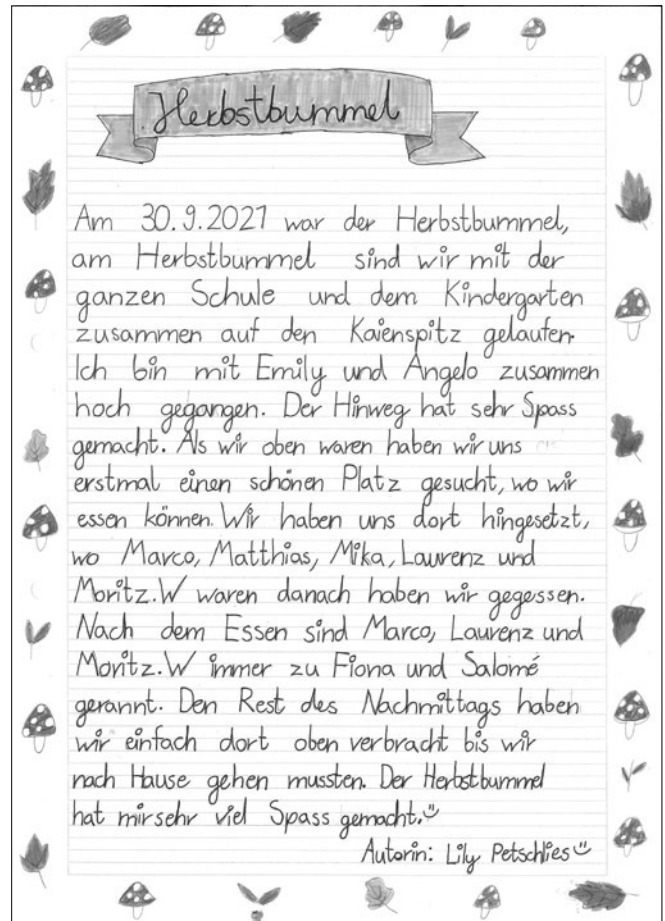 Herbstbummel
Am 30.9.2021 war der Herbstbummel,
am Herbstbummel sind wir mit der
ganzen Schule und dem Kindergarten
zusammen auf den Kaienspitz gelaufen.
Ich bin mit Emily und Angelo zusammen
hoch gegangen. Der Hinweg hat sehr Spass
gemacht. Als wir oben waren haben wir uns
erstmal einen schönen Platz gesucht, wo wir
essen können. Wir haben uns dort hingesetzt,
wo Marco, Matthias, Mika, Laurenz und
Moritz.W waren danach haben wir gegessen.
Nach dem Essen sind Marco, Laurenz und
Moritz.W immer zu Fiona und Salomé
gerannt. Den Rest des Nachmittags haben
wir einfach dort oben verbracht bis wir
nach Hause gehen mussten. Der Herbstbummel
hat mir sehr viel Spass gemacht.
Autorin: Lily Petschlies